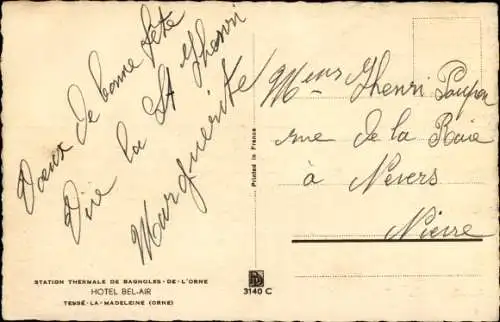 Vœux de bonne fête
Vive la St Henri
Marguerite
STATION THERMALE DE BAGNOLES-DE-L'ORNE
HOTEL BEL-AIR
TESSÉ-LA-MADELEINE (ORNE)
Printed in France
3140 C
Mons Henri
rue de la Raie
à Nevers
Nièvre